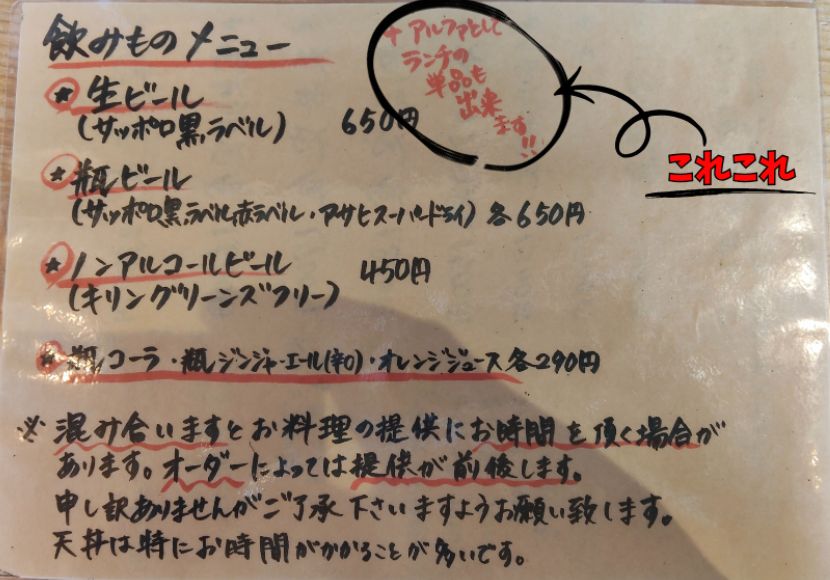 飲みものメニュー
+アルファとして
ランチの
単品も
出来
ます!!
これこれ
★生ビール
(サッポロ黒ラベル) 650円
★瓶ビール
(サッポロ黒ラベル赤ラベル・アサヒスーパードライ) 各650円
★ノンアルコールビール 450円
(キリングリーンズフリー)
★瓶コーラ・瓶ジンジャーエール(辛口)・オレンジジュース各290円
※混み合いますとお料理の提供にお時間を頂く場合が
あります。オーダーによっては提供が前後します。
申し訳ありませんがご了承下さいますようお願い致します。
天丼は特にお時間がかかることが多いです。